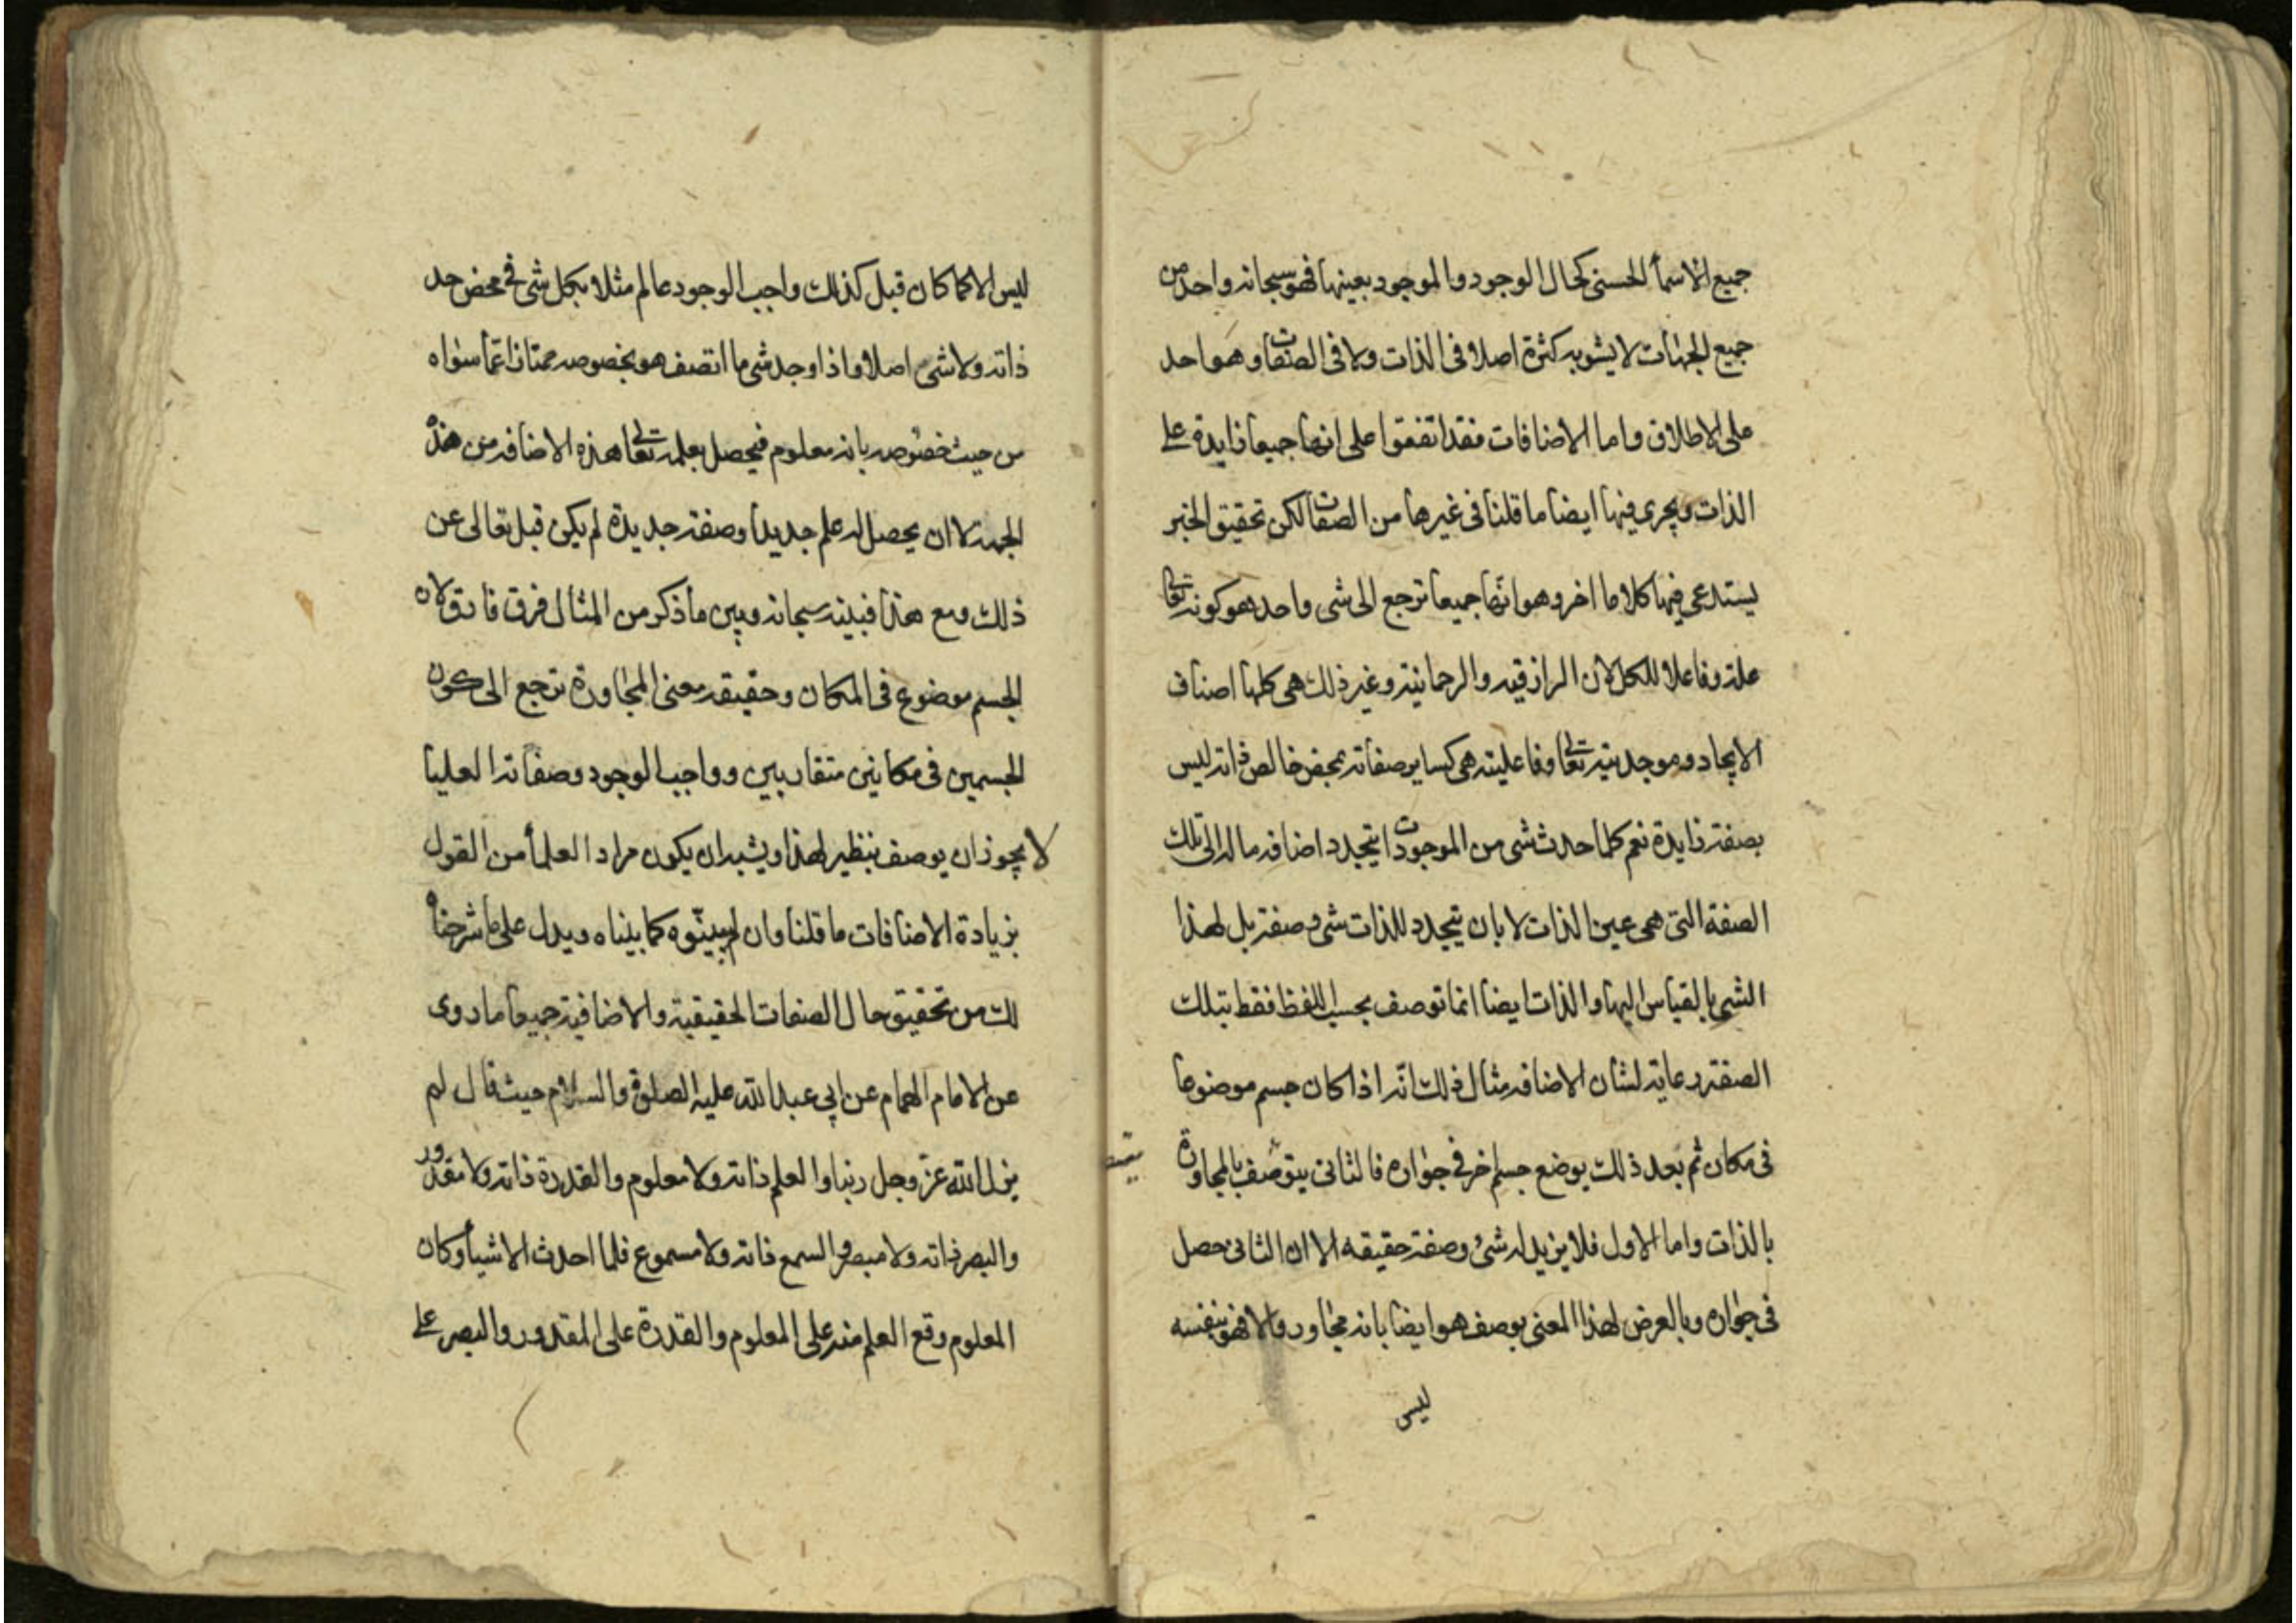 جميع الاسمأ الحسنى كحال الوجود والموجود بعينها فهو سبحانه واحد من
جميع الجهات لا يشوبه كثرة اصلا فى الذات ولا فى الصفات وهو احد
على الاطلاق واما الاضافات فقد اتفقوا على انها جميعا زايدة على
الذات ويجرى فيها ايضا ما قلنا فى غيرها من الصفات لكن تحقيق الخبر
يستدعى فيها كلاما اخر وهو انّها جميعا ترجع الى شى واحد هو كونه تعالى
علة وفاعلا للكل لان الرازقيه والرحمانية وغير ذلك هى كلها اصناف
الايجاد وموجديته تعالى وفاعليته هى كساير صفاته بمحض خالص ذاته ليس
بصفة زايدة نعم كلما حدث شى من الموجودات يتجدد اضافه ما له الى تلك
الصفة التى هى عين الذات لا بان يتجدد للذات شى وصفة بل لهذا
الشى بالقياس اليها والذات ايضا انما توصف بحسب اللفظ فقط بتلك
الصفة رعاية لشان الاضافه مثال ذلك انّه اذا كان جسم موضوعا
فى مكان ثم بعد ذلك يوضع جسم اخر فى جواره فالثانى يتوصف بالمجاورة
بالذات واما الاول فلا يزيد له شئ وصفة حقيقه الا ان الثانى حصل
فى جواره وبالعرض لهذا المعنى يوصف هو ايضا بانه مجاور والا فهو بنفسه
ليس
ليس الا كما كان قبل كذلك واجب الوجود عالم مثلا بكل شى فى محض حد
ذاته ولا شى اصلا واذا وجد شى ما اتصف هو بخصوصه ممتازا عمّا سواه
من حيث خصوصه بانه معلوم فيحصل بعلمه تعالى هذه الاضافه من هذه
الجهة لا ان يحصل له علم جديدا وصفة جديدة لم يكن قبل تعالى عن
ذلك ومع هذا فبينه سبحانه وبين ما ذكر من المثال فرق فارق لان
الجسم موضوع فى المكان وحقيقه معنى المجاورة ترجع الى كون
الجسمين فى مكانين متقاربين وواجب الوجود وصفاته العليا
لا يجوز ان يوصف بنظير لهذا ويشبه ان يكون مراد العلمأ من القول
بزيادة الاضافات ما قلنا وان لم يبيّنوه كما بيناه ويدل على ما شرحناه
لك من تحقيق حال الصفات الحقيقية والاضافية جميعا ما روى
عن الامام الهمام عن ابى عبد الله عليه الصلوة والسلام حيث قال لم
يزل الله عزّ وجل ربنا والعلم ذاته ولا معلوم والقدرة ذاته ولا مقدور
والبصر ذاته ولا مبصر والسمع ذاته ولا مسموع فلما احدث الاشيأ وكان
المعلوم وقع العلم منه على المعلوم والقدرة على المقدور والبصر على